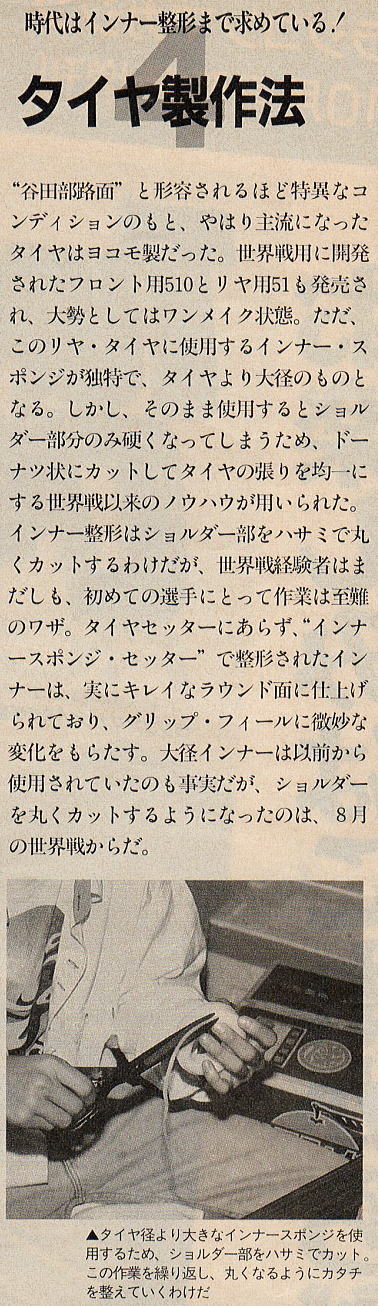 時代はインナー整形まで求めている!
4
タイヤ製作法
“谷田部路面”と形容されるほど特異なコ
ンディションのもと、やはり主流になった
タイヤはヨコモ製だった。世界戦用に開発
されたフロント用510とリヤ用51も発売さ
れ、大勢としてはワンメイク状態。ただ、
このリヤ・タイヤに使用するインナー・ス
ポンジが独特で、タイヤより大径のものと
なる。しかし、そのまま使用するとショル
ダー部分のみ硬くなってしまうため、ドー
ナツ状にカットしてタイヤの張りを均一に
する世界戦以来のノウハウが用いられた。
インナー整形はショルダー部をハサミで丸
くカットするわけだが、世界戦経験者はま
だしも、初めての選手にとって作業は至難
のワザ。タイヤセッターにあらず、“インナ
ースポンジ・セッター”で整形されたイン
ナーは、実にキレイなラウンド面に仕上げ
られており、グリップ・フィールに微妙な
変化をもたらす。大径インナーは以前から
使用されていたのも事実だが、ショルダー
を丸くカットするようになったのは、8月
の世界戦からだ。
▲タイヤ径より大きなインナースポンジを使
用するため、ショルダー部をハサミでカット。
この作業を繰り返し、丸くなるようにカタチ
を整えていくわけだ